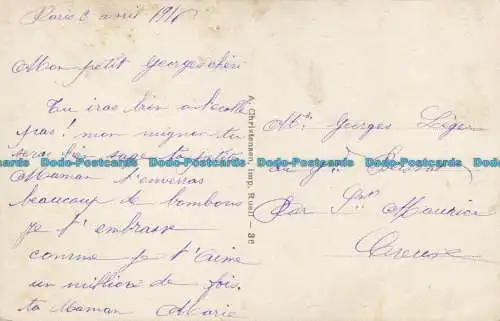 Paris 3 avril 1916
Mon petit Georges chéri
Tu iras bien à l'école
pas! mon mignon tu
seras bien sage ta petite
Maman t'enverras
beaucoup de bombons
je t'embrasse
comme je t'aime
un milliore de fois.
ta Maman Marie
A. Christensen, Imp. Rueil — 36
Mr. Georges Léger
au Gd
Par St Maurice
Creuse
Dodo-Postcards Dodo-Postcards Dodo-Postcards Dodo-Postcards